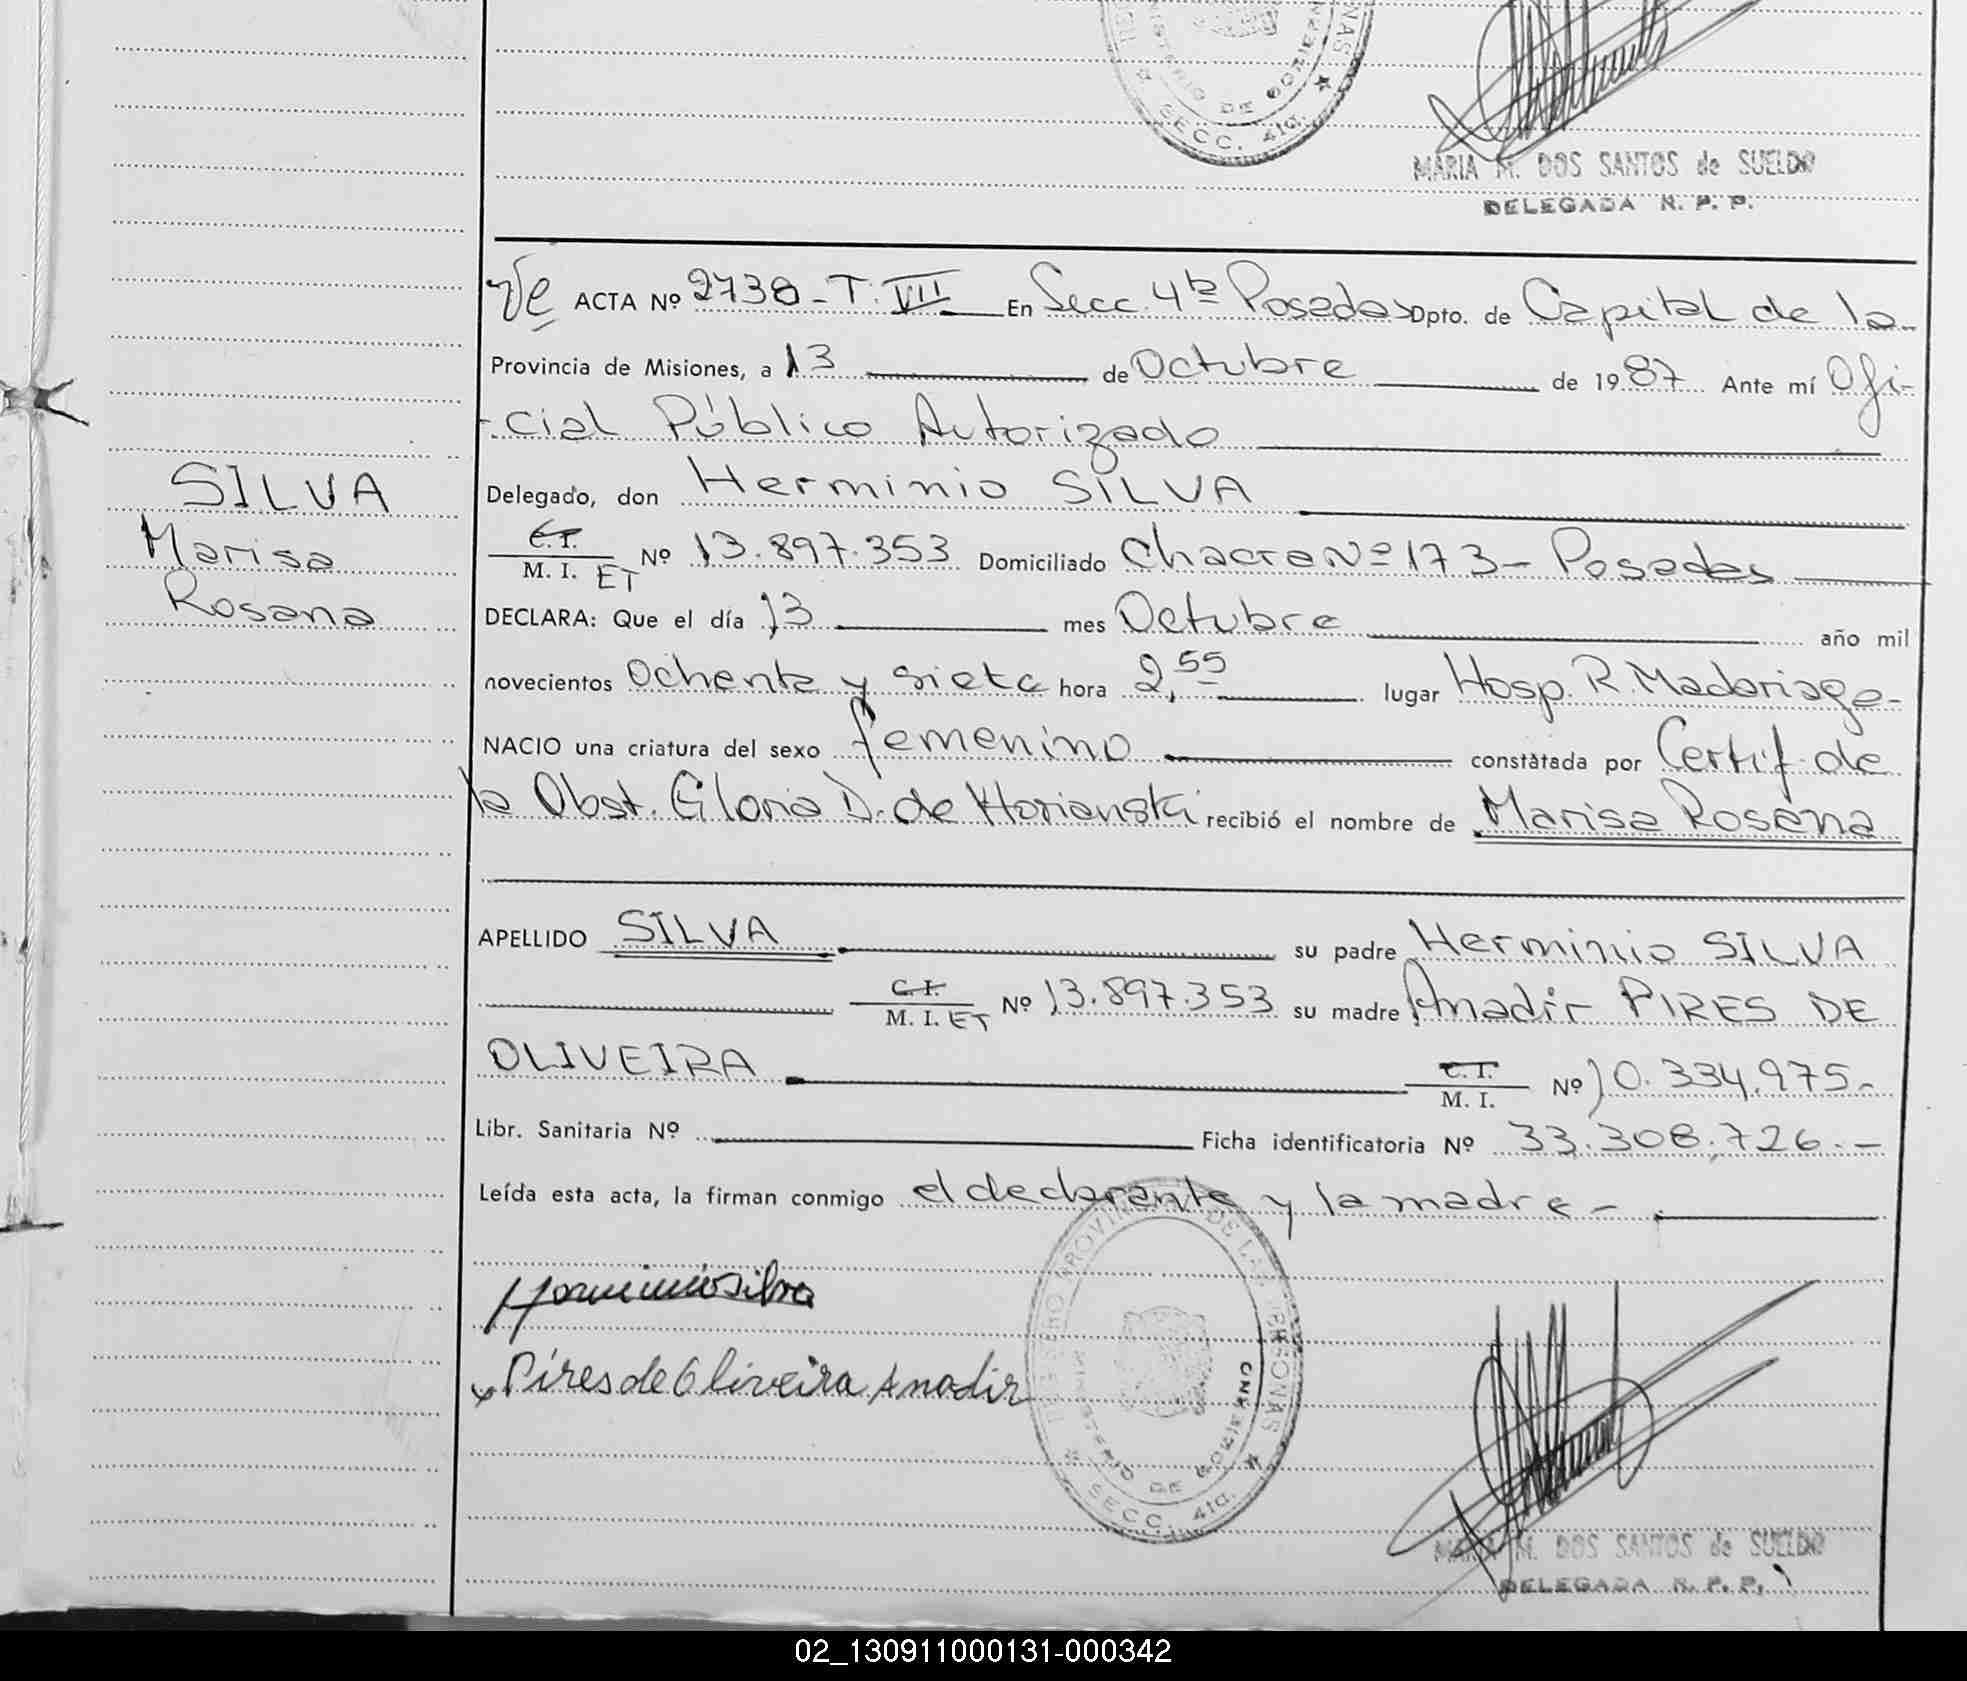 MINISTERIO DE GOBIERNO
SECC. 4ta.
MARIA M. DOS SANTOS de SUELDO
DELEGADA R. P. P.
ACTA Nº 2738 - T. VII En Secc. 4ta Posadas Dpto. de Capital de la
Provincia de Misiones, a 13 de Octubre de 1987 Ante mí Ofi-
-cial Público Autorizado
SILVA
Marisa
Rosana
Delegado, don Herminio SILVA
C. I.
M. I. ET Nº 13.897.353 Domiciliado Chacra Nº 173 - Posadas
DECLARA: Que el día 13 mes Octubre año mil
novecientos Ochenta y siete hora 2,55 lugar Hosp. R. Madariaga -
NACIO una criatura del sexo femenino constatada por Certif. de
la Obst. Gloria D. de Horianski recibió el nombre de Marisa Rosana
APELLIDO SILVA su padre Herminio SILVA
C. I.
M. I. ET Nº 13.897.353 su madre Anadir PIRES DE
OLIVEIRA C. I.
M. I. Nº 10.334.975.-
Libr. Sanitaria Nº Ficha identificatoria Nº 33.308.726.-
Leída esta acta, la firman conmigo el declarante y la madre -
Herminio Silva
Pires de Oliveira Anadir
REGISTRO PROVINCIAL DE LAS PERSONAS
MINISTERIO DE GOBIERNO
SECC. 4ta.
MARIA M. DOS SANTOS de SUELDO
DELEGADA R. P. P.
02_130911000131-000342